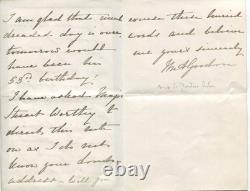 I am glad that much
dreaded day is over
tomorrow would
have been his
53rd birthday!
I have asked Major
Street Worthy to
direct this note
on as I do not
know your London
address - Will you
excuse these hurried
words and believe
me yours sincerely
Gordon